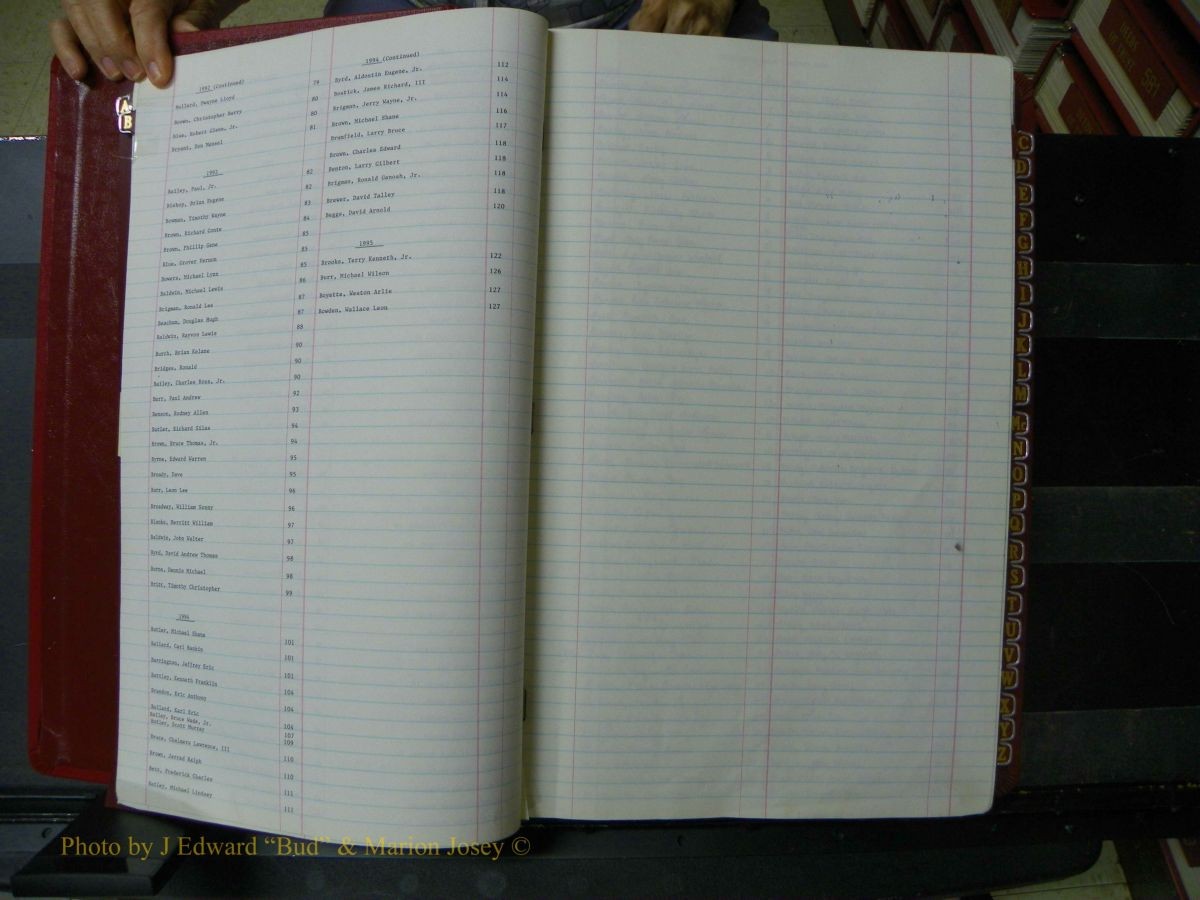 1992 (Continued)
Bullard, Dwayne Lloyd 79
Brown, Christopher Barry 80
Blue, Robert Glenn, Jr. 80
Bryant, Don 81
1993
Bailey, Paul, Jr. 82
Bishop, Brian Eugene 82
Bowman, Timothy Wayne 83
Brown, Richard Conte 84
Brown, Phillip Gene 85
Blue, Grover Vernon 85
Bowers, Michael Lynn 85
Baldwin, Michael Lewis 86
Brigman, Ronald Lee 87
Beachum, Douglas Hugh 87
Baldwin, Rayvon Lewis 88
Burch, Brian Kelane 90
Bridges, Ronald 90
Bailey, Charles Ross, Jr. 90
Burr, Paul Andrew 92
Benson, Rodney Allen 93
Butler, Richard Silas 94
Brown, Bruce Thomas, Jr. 94
Byrne, Edward Warren 95
Broady, Dave 95
Burr, Leon Lee 96
Broadway, William Sonny 96
Blanks, Merritt William 97
Baldwin, John Walter 97
Byrd, David Andrew Thomas 98
Burns, Dennis Michael 98
Britt, Timothy Christopher 99
1994
Butler, Michael Shane 101
Bullard, Carl Rankin 101
Barrington, Jeffrey Eric 101
Battley, Kenneth Franklin 104
Brandon, Eric Anthony 104
Bullard, Karl Eric 104
Bailey, Bruce Wade, Jr. 107
Butler, Scott Murray 109
Bruce, Chalmers Lawrence, III 110
Brown, Jerrad Ralph 110
Bess, Frederick Charles 111
Bailey, Michael Lindsey 111
1994 (Continued)
Byrd, Aldostin Eugene, Jr. 112
Bostick, James Richard, III 114
Brigman, Jerry Wayne, Jr. 114
Brown, Michael Shane 116
Brumfield, Larry Bruce 117
Brown, Charles Edward 118
Benton, Larry Gilbert 118
Brigman, Ronald Canoah, Jr. 118
Brewer, David Talley 118
Beggs, David Arnold 120
1995
Brooks, Terry Kenneth, Jr. 122
Burr, Michael Wilson 126
Boyette, Weston Arlie 127
Bowden, Wallace Leon 127
A
B
C
D
E
F
G
H
I
J
K
L
M
Mc
N
O
P
Q
R
S
T
U
V
W
X
Y
Z
581
Photo by J Edward “Bud” & Marion Josey ©